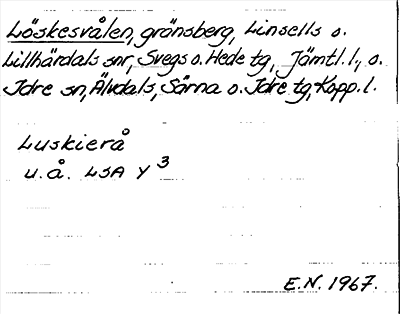 Löskesvålen, gränsberg, Linsells o.
Lillhärdals snr, Svegs o. Hede tg, Jämtl. l., o.
Idre sn, Älvdals, Särna o. Idre tg, Kopp. l.
Luskierå
u.å. LSA Y 3
E.N. 1967.